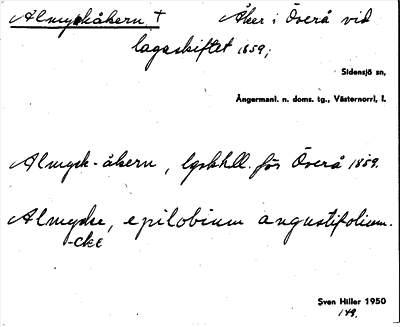 Älmyskåkern † Åker i Överå vid
lagaskiftet 1859;
Sidensjö sn,
Ångermanl. n. doms. tg., Västernorrl. l.
Älmysk-åkern, lgskhll. för Överå 1859.
Älmycke, epilobium angustifolium.
-cke
Sven Hiller 1950
149.